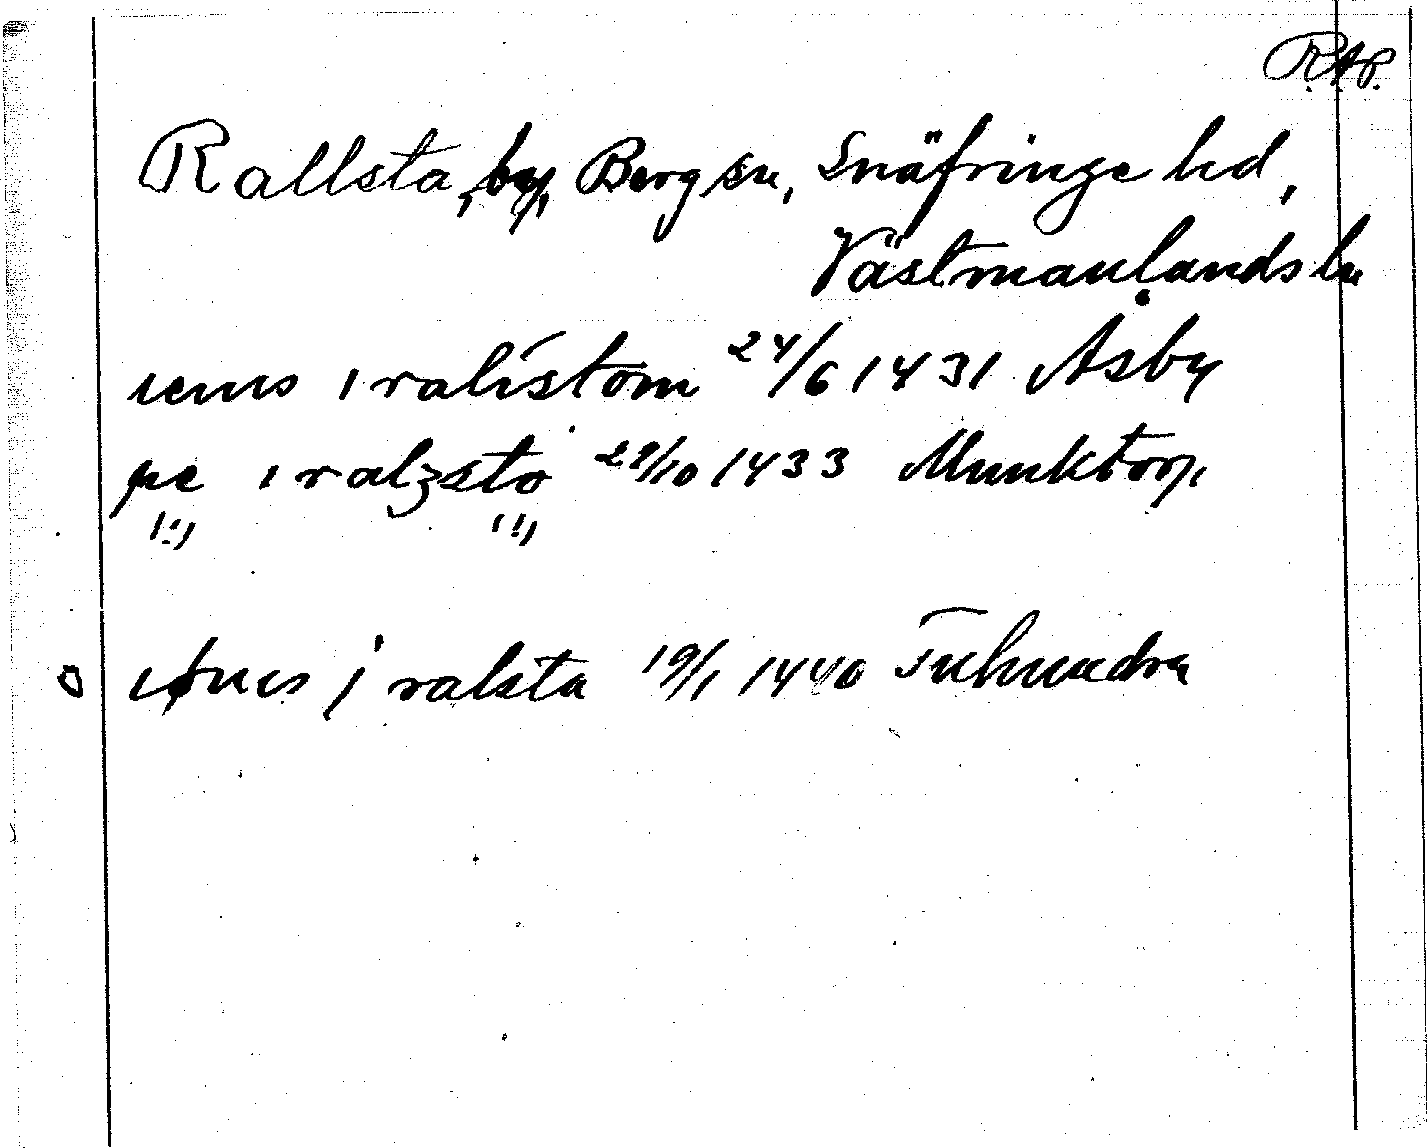 R.A.P.
Rallsta, by, Berg sn, Snäfringe hd,
Västmanlands ln
i ralistom 24/6 1431 Åsby
pe i ralzsto 29/10 1433 Munktorp
(!) (!)
j ralsta 19/1 1440 Tuhundra